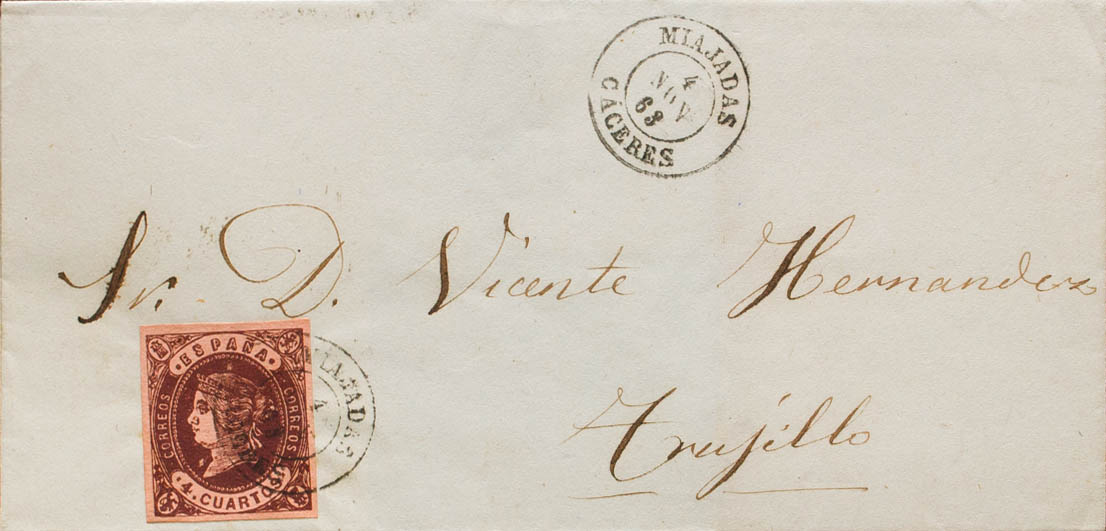 MIAJADAS
4
NOV
63
CÁCERES
Sr. D. Vicente Hernandez
Trujillo
ESPAÑA
CORREOS CORREOS
4 CUARTOS
MIAJADAS
4